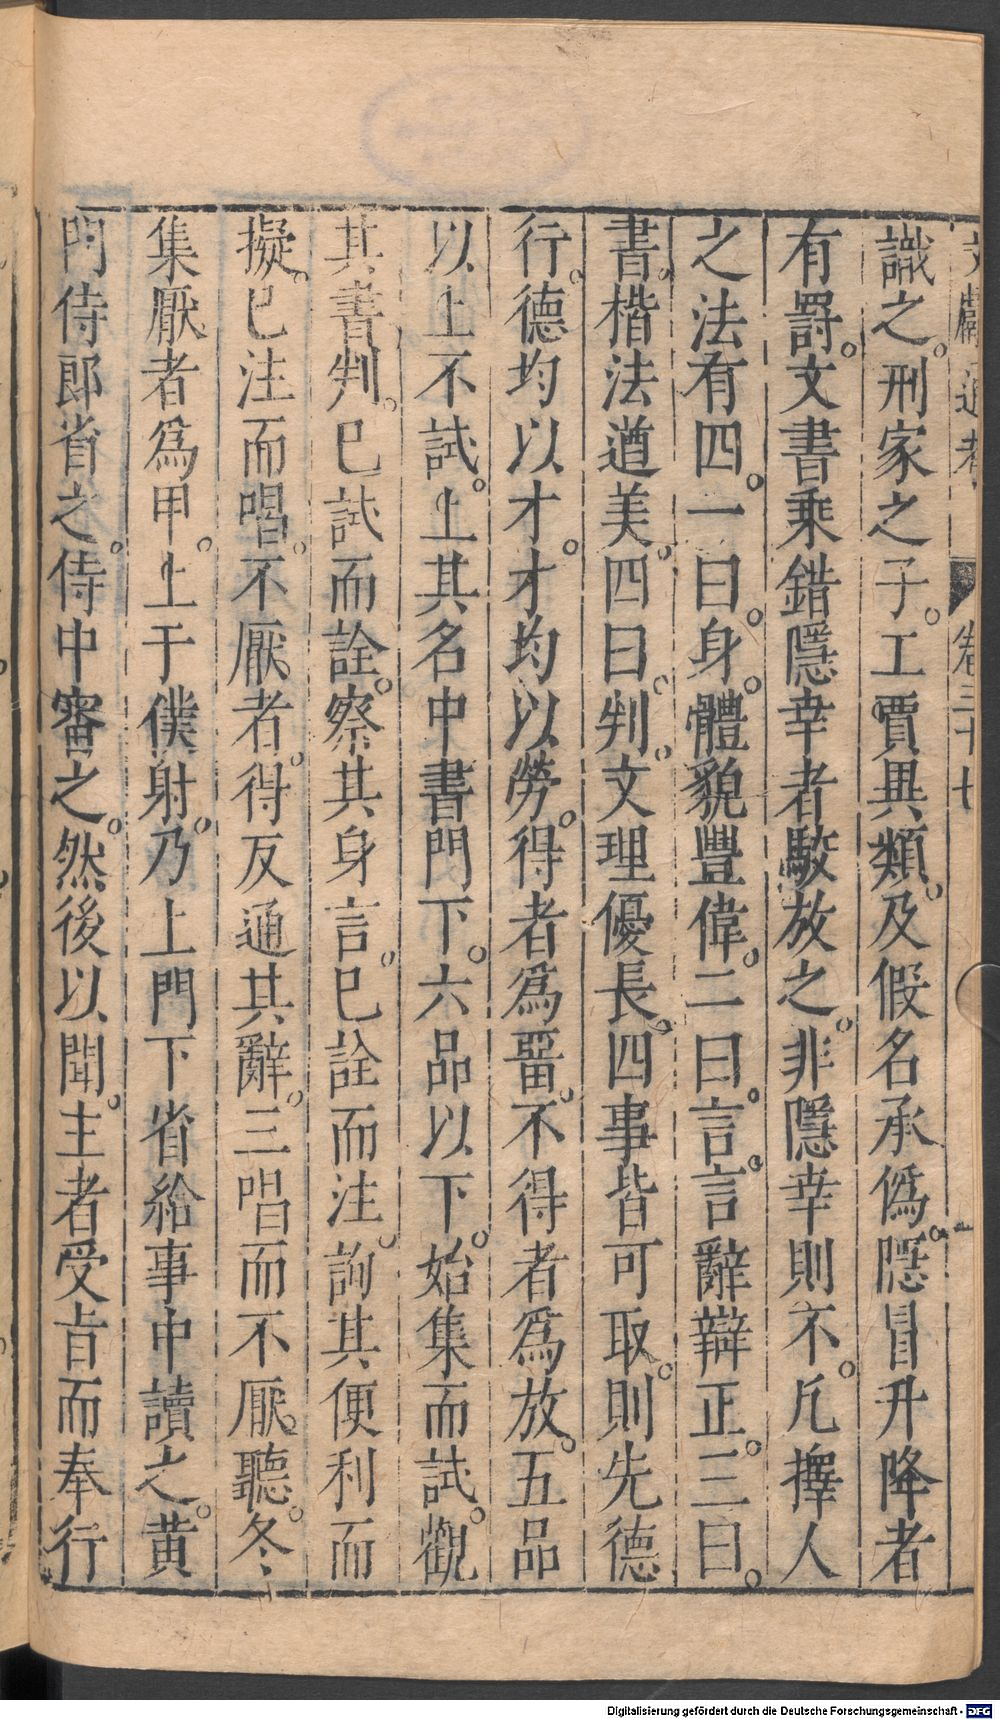 文獻通考 卷三十七
識之。刑家之子。工賈異類。及假名承僞。隱冒升降者
有罸。文書乘錯隱幸者駮放之。非隱幸則不。凡擇人
之法有四。一曰。身。體貌豐偉。二曰。言。言辭辯正。三曰。
書。楷法遒美。四曰。判。文理優長。四事皆可取。則先德
行。德均以才。才均以勞。得者爲畱。不得者爲放。五品
以上不試。上其名中書門下。六品以下。始集而試。觀
其書判。已試而詮。察其身言。已詮而注。詢其便利而
擬。已注而唱。不厭者。得反通其辭。三唱而不厭。聽。冬
集厭者爲甲。上于僕射。乃上門下省給事中讀之。黄
門侍郎省之。侍中審之。然後以聞。主者受旨而奉行
Digitalisierung gefördert durch die Deutsche Forschungsgemeinschaft - DFG